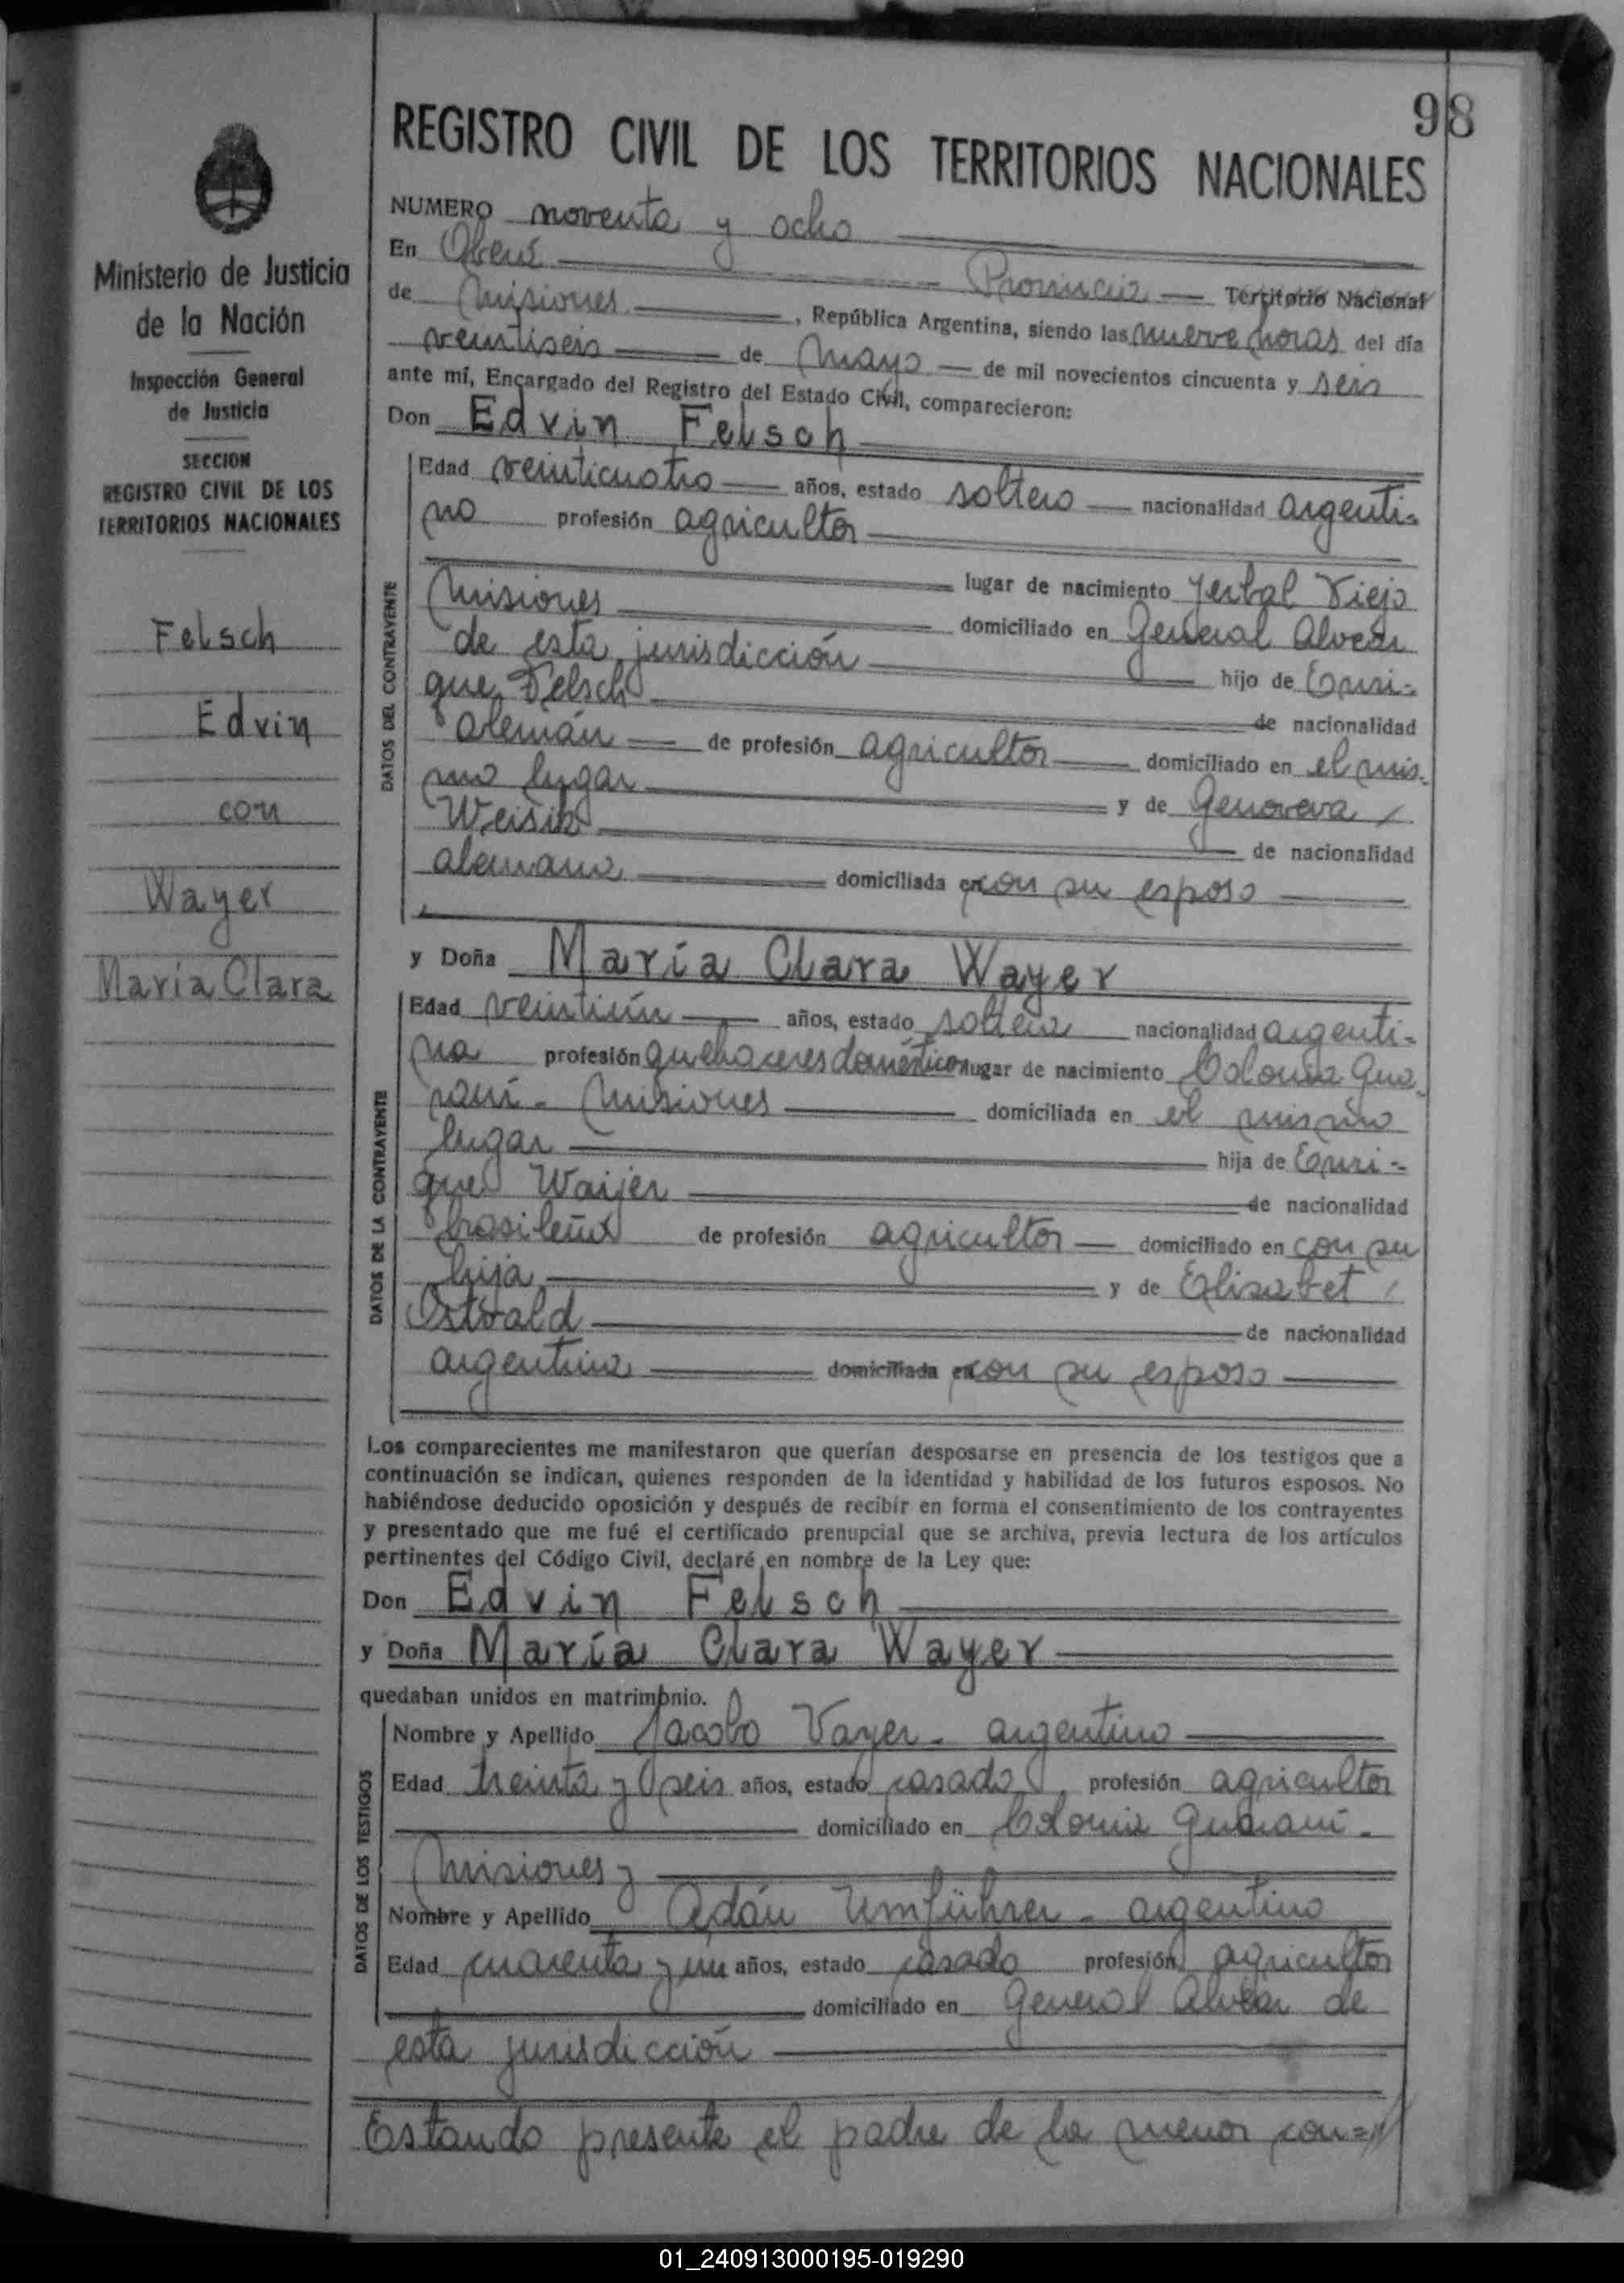 98
REGISTRO CIVIL DE LOS TERRITORIOS NACIONALES
Ministerio de Justicia
de la Nación
Inspección General
de Justicia
SECCION
REGISTRO CIVIL DE LOS
TERRITORIOS NACIONALES
Felsch
Edvin
con
Wayer
María Clara
NUMERO noventa y ocho
En Oberá Provincia Territorio Nacional
de Misiones, República Argentina, siendo las nueve horas del día
veintiseis de Mayo de mil novecientos cincuenta y seis
ante mí, Encargado del Registro del Estado Civil, comparecieron:
Don Edvin Felsch
DATOS DEL CONTRAYENTE
Edad veinticuatro años, estado soltero nacionalidad argenti-
no profesión agricultor
lugar de nacimiento Yerbal Viejo
Misiones domiciliado en General Alvear
de esta jurisdicción hijo de Enri-
que Felsch de nacionalidad
alemán de profesión agricultor domiciliado en el mis-
mo lugar y de Genoveva
de nacionalidad
alemana domiciliada en con su esposo
y Doña María Clara Wayer
DATOS DE LA CONTRAYENTE
Edad veintiún años, estado soltera nacionalidad argenti-
na profesión quehaceres domésticos lugar de nacimiento Colonia Gua-
raní - Misiones domiciliada en el mismo
lugar hija de Enri-
que Waijer de nacionalidad
brasileña de profesión agricultor domiciliado en con su
hija y de Elisabet
Ostvald de nacionalidad
argentina domiciliada en con su esposo
Los comparecientes me manifestaron que querían desposarse en presencia de los testigos que a
continuación se indican, quienes responden de la identidad y habilidad de los futuros esposos. No
habiéndose deducido oposición y después de recibir en forma el consentimiento de los contrayentes
y presentado que me fué el certificado prenupcial que se archiva, previa lectura de los artículos
pertinentes del Código Civil, declaré en nombre de la Ley que:
Don Edvin Felsch
y Doña María Clara Wayer
quedaban unidos en matrimonio.
DATOS DE LOS TESTIGOS
Nombre y Apellido Jacobo Vayer - argentino
Edad treinta y seis años, estado casado profesión agricultor
domiciliado en Colonia Guaraní -
Misiones y
Nombre y Apellido Adán Umführer - argentino
Edad cuarenta y un años, estado casado profesión agricultor
domiciliado en General Alvear de
esta jurisdicción
Estando presente el padre de la menor con=//
01_240913000195-019290